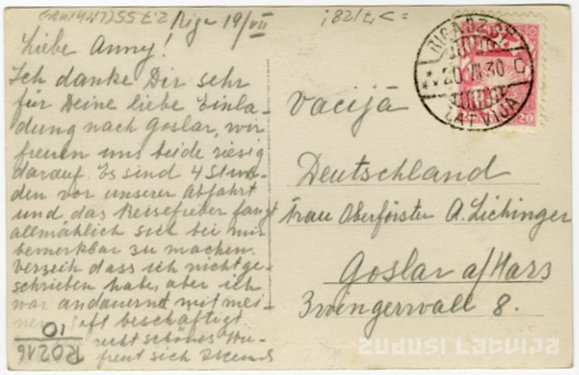 Riga 19/VII
Liebe Anny!
Ich danke Dir sehr
für Deine liebe Einla-
dung nach Goslar, wir
freuen uns beide riesig
darauf. Es sind 4 Stun-
den vor unserer Abfahrt
und das Reisefieber fängt
allmählich sich bei mir
bemerkbar zu machen.
Verzeih dass ich nicht ge-
schrieben habe, aber ich
war andauernd mit mei-
beschäftigt
recht schönes
freut sich
RIGA
20 VII 30
C
LATVIJA
20
Vācijā
Deutschland
Frau Oberförster A. Lichinger
Goslar a/Harz
Zwingerwall 8.
10
R0216
ZUDUSI LATVIJA